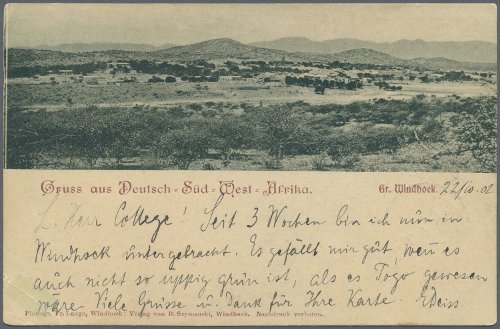 Gruss aus Deutsch-Süd-West-Afrika.
Gr. Windhoek. 22/10.02.
L. Herr College! Seit 3 Wochen bin ich nun in
Windhoek untergebracht. Es gefällt mir gut, wenn es
auch nicht so üppig grün ist, als es Togo gewesen
wäre. Viele Grüsse u. Dank für Ihre Karte.
Photogr. Fr. Lange, Windhoek. Verlag von R. Szymanski, Windhoek. Nachdruck verboten.